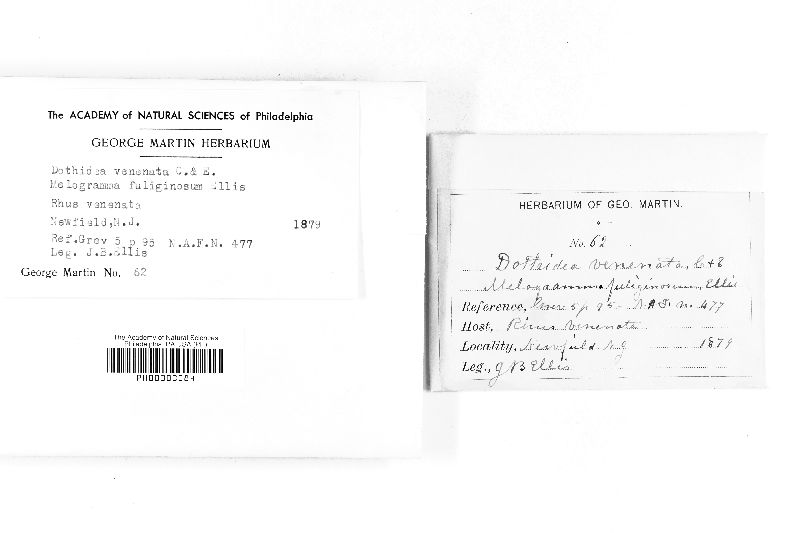 The ACADEMY of NATURAL SCIENCES of Philadelphia
GEORGE MARTIN HERBARIUM
Dothidea venenata C.& E.
Melogramma fuliginosum Ellis
Rhus venenata
Newfield,N.J. 1879
Ref.Grev 5 p 95 N.A.F.N. 477
Leg. J.B.Ellis
George Martin No. 62
The Academy of Natural Sciences
Philadelphia, PA
HERBARIUM OF GEO. MARTIN.
No. 62
Dothidea venenata, C & E
Melogramma fuliginosum, Ellis
Reference, Grev 5 p 95 N.A.F. N. 477
Host, Rhus venenata
Locality, Newfield N J 1879
Leg., J B Ellis